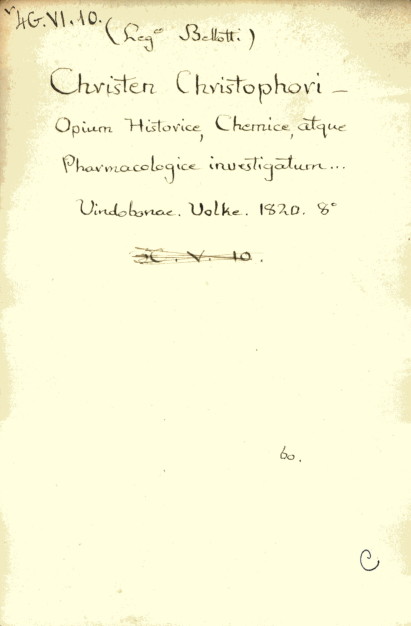 4G.VI.10.
(Leg° Bellotti)
Christen Christophori —
Opium Historice, Chemice, atque
Pharmacologice investigatum...
Vindobonae. Volke. 1820. 8°
V. 10.
60.
C